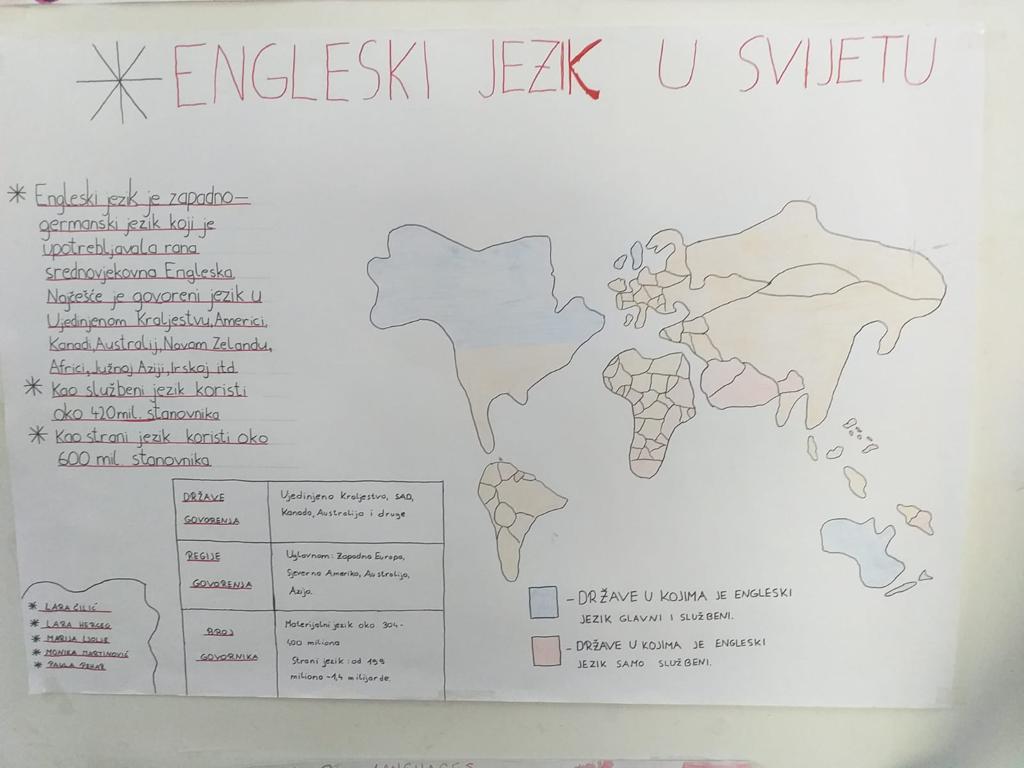 ENGLESKI JEZIK U SVIJETU
Engleski jezik je zapadno-
germanski jezik koji je
upotrebljavala rana
srednovjekovna Engleska.
Najčešće je govoreni jezik u
Ujedinjenom Kraljestvu, Americi,
Kanadi, Australij, Novom Zelandu,
Africi, Južnoj Aziji, Irskoj itd.
Kao službeni jezik koristi
oko 420 mil. stanovnika
Kao strani jezik koristi oko
600 mil. stanovnika
DRŽAVE
GOVORENJA
Ujedinjeno Kraljestvo, SAD,
Kanada, Australija i druge
REGIJE
GOVORENJA
Uglavnom: Zapadna Europa,
Sjeverna Amerika, Australija,
Azija.
BROJ
GOVORNIKA
Materijalni jezik oko 304-
400 miliona
Strani jezik: od 199
miliona ~1,4 milijarde.
- DRŽAVE U KOJIMA JE ENGLESKI
JEZIK GLAVNI I SLUŽBENI.
- DRŽAVE U KOJIMA JE ENGLESKI
JEZIK SAMO SLUŽBENI.
LARA ČILIĆ
LARA HERCEG
MARIJA LJOLJE
MONIKA MARTINOVIĆ
PAULA PEHAR
LANGUAGES